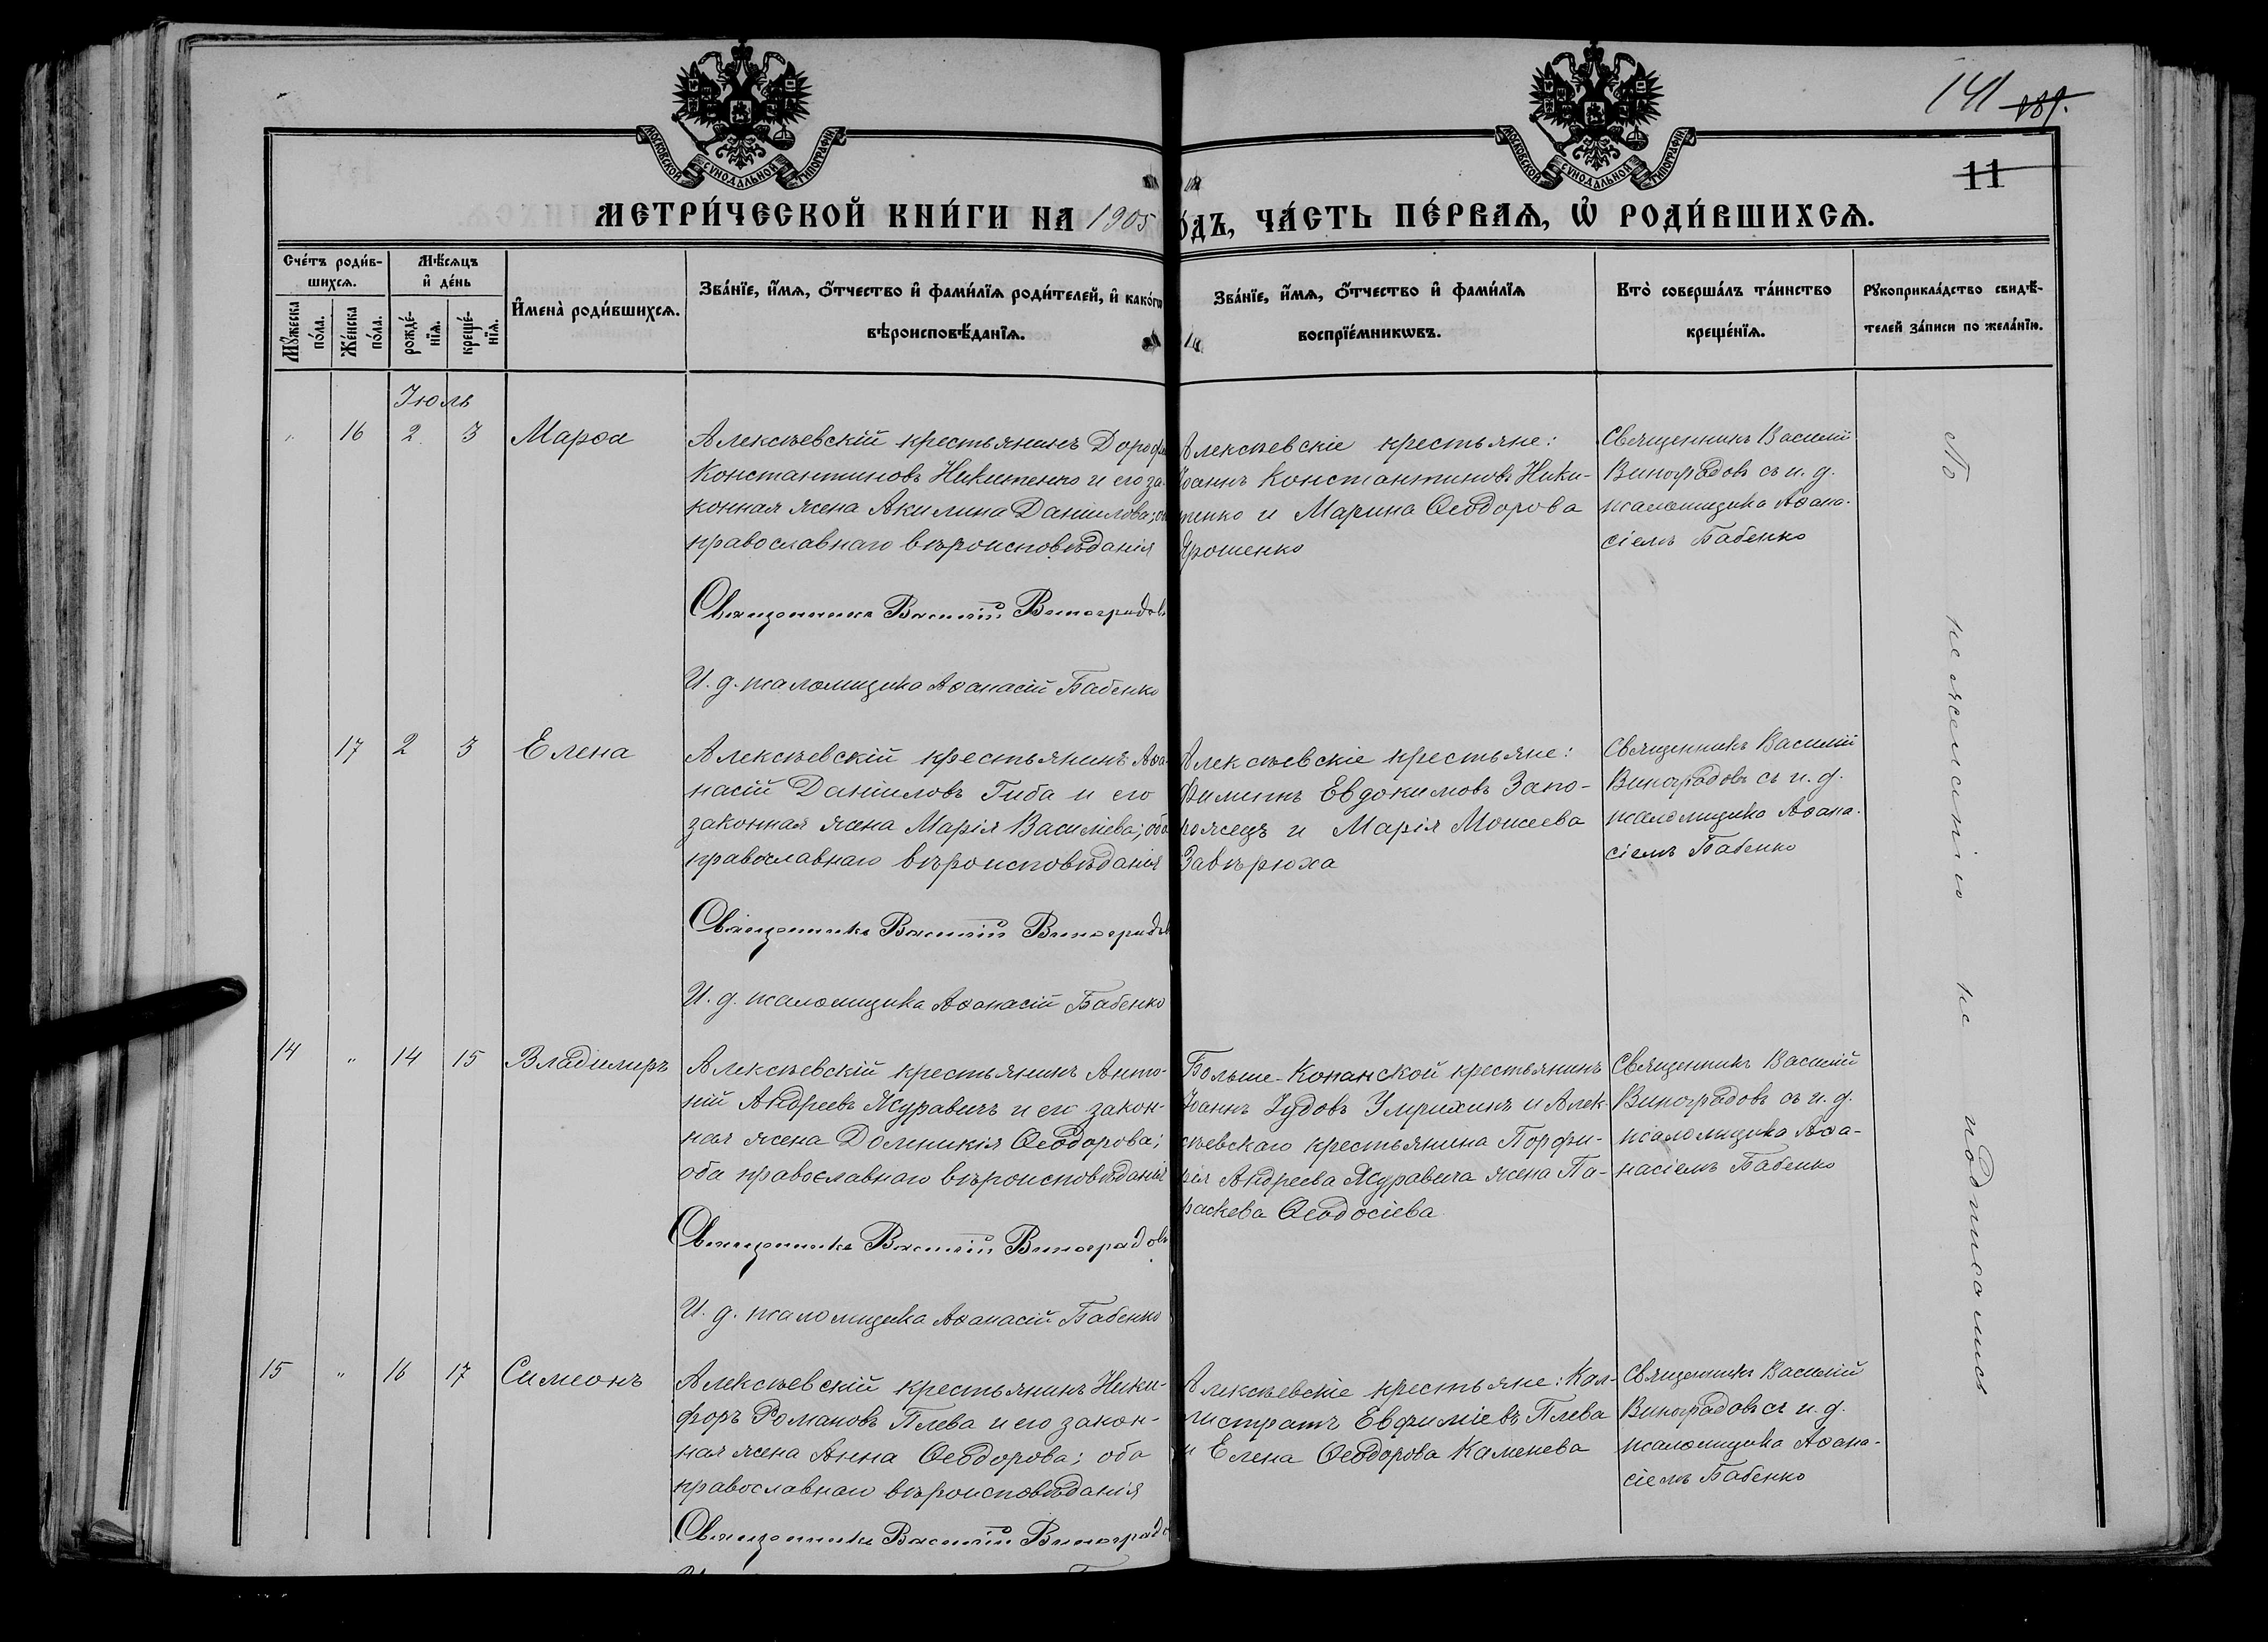 141 189.
11
МОСКОВСКОЙ СѴНОДАЛЬНОЙ ТИПОГРАФІИ
МОСКОВСКОЙ СѴНОДАЛЬНОЙ ТИПОГРАФІИ
МЕТРИ́ЧЕСКОЙ КНИ́ГИ НА 1905
О́ДЪ, ЧА́СТЬ ПЕ́РВАѦ, Ѡ҆ РОДИ́ВШИХСѦ.
Сче́тъ роди́в-
шихсѧ.
Мѣ́сѧцъ
и҆ де́нь
Мꙋ́жеска
по́ла.
Же́нска
по́ла.
рожде́-
нїѧ.
креще́-
нїѧ.
И҆мена̀ роди́вшихсѧ.
Зва́нїе, и҆́мѧ, ѻ҆́тчество и҆ фами́лїѧ роди́телей, и҆ како́гѡ
вѣроисповѣ́данїѧ.
Зва́нїе, и҆́мѧ, ѻ҆́тчество и҆ фами́лїѧ
воспрїе́мникѡвъ.
Кто̀ соверша́лъ та́инство
креще́нїѧ.
Рꙋкоприкла́дство свидѣ́-
телей за́писи по жела́нїю.
Іюль
" 16 2 3 Марѳа
Алексѣевскій крестьянинъ Дорофе
Константиновъ Никитенко и его за-
конная жена Акилина Даніилова; об
православнаго вѣроисповѣданія
Священникъ Василій Виноградовъ
И. д. псаломщика Аѳанасій Бабенко
Алексѣевскіе крестьяне:
Іоаннъ Константиновъ Ники-
тенко и Марина Ѳеодорова
Ярошенко
Священникъ Василій
Виноградовъ съ и. д.
псаломщика Аѳана-
сіемъ Бабенко
17 2 3 Елена
Алексѣевскій крестьянинъ Аѳа-
насій Даніиловъ Гиба и его
законная жена Марія Василіева; оба
православнаго вѣроисповѣданія
Священникъ Василій Виноградовъ
И. д. псаломщика Аѳанасій Бабенко
Алексѣевскіе крестьяне:
Филиппъ Евдокимовъ Запо-
рожецъ и Марія Моисеева
Завѣрюха
Священникъ Василій
Виноградовъ съ и. д.
псаломщика Аѳана-
сіемъ Бабенко
14 " 14 15 Владимиръ
Алексѣевскій крестьянинъ Анто-
ній Андреевъ Журавичъ и его закон-
ная жена Домникія Ѳеодорова;
оба православнаго вѣроисповѣданія
Священникъ Василій Виноградовъ
И. д. псаломщика Аѳанасій Бабенко
Больше-Копанской крестьянинъ
Іоаннъ Іудовъ Умрихинъ и Алек-
сѣевскаго крестьянина Порфи-
рія Андреева Журавича жена Па-
раскева Ѳеодосіева
Священникъ Василій
Виноградовъ съ и. д.
псаломщика Аѳа-
насіемъ Бабенко
15 " 16 17 Симеонъ
Алексѣевскій крестьянинъ Ники-
форъ Романовъ Плева и его закон-
ная жена Анна Ѳеодорова; оба
православнаго вѣроисповѣданія
Священникъ Василій Виноградо
Алексѣевскіе крестьяне: Кал-
листратъ Евфиміевъ Плева
и Елена Ѳеодорова Каменева
Священникъ Василій
Виноградовъ съ и. д.
псаломщика Аѳана-
сіемъ Бабенко
По не желанію не подписались